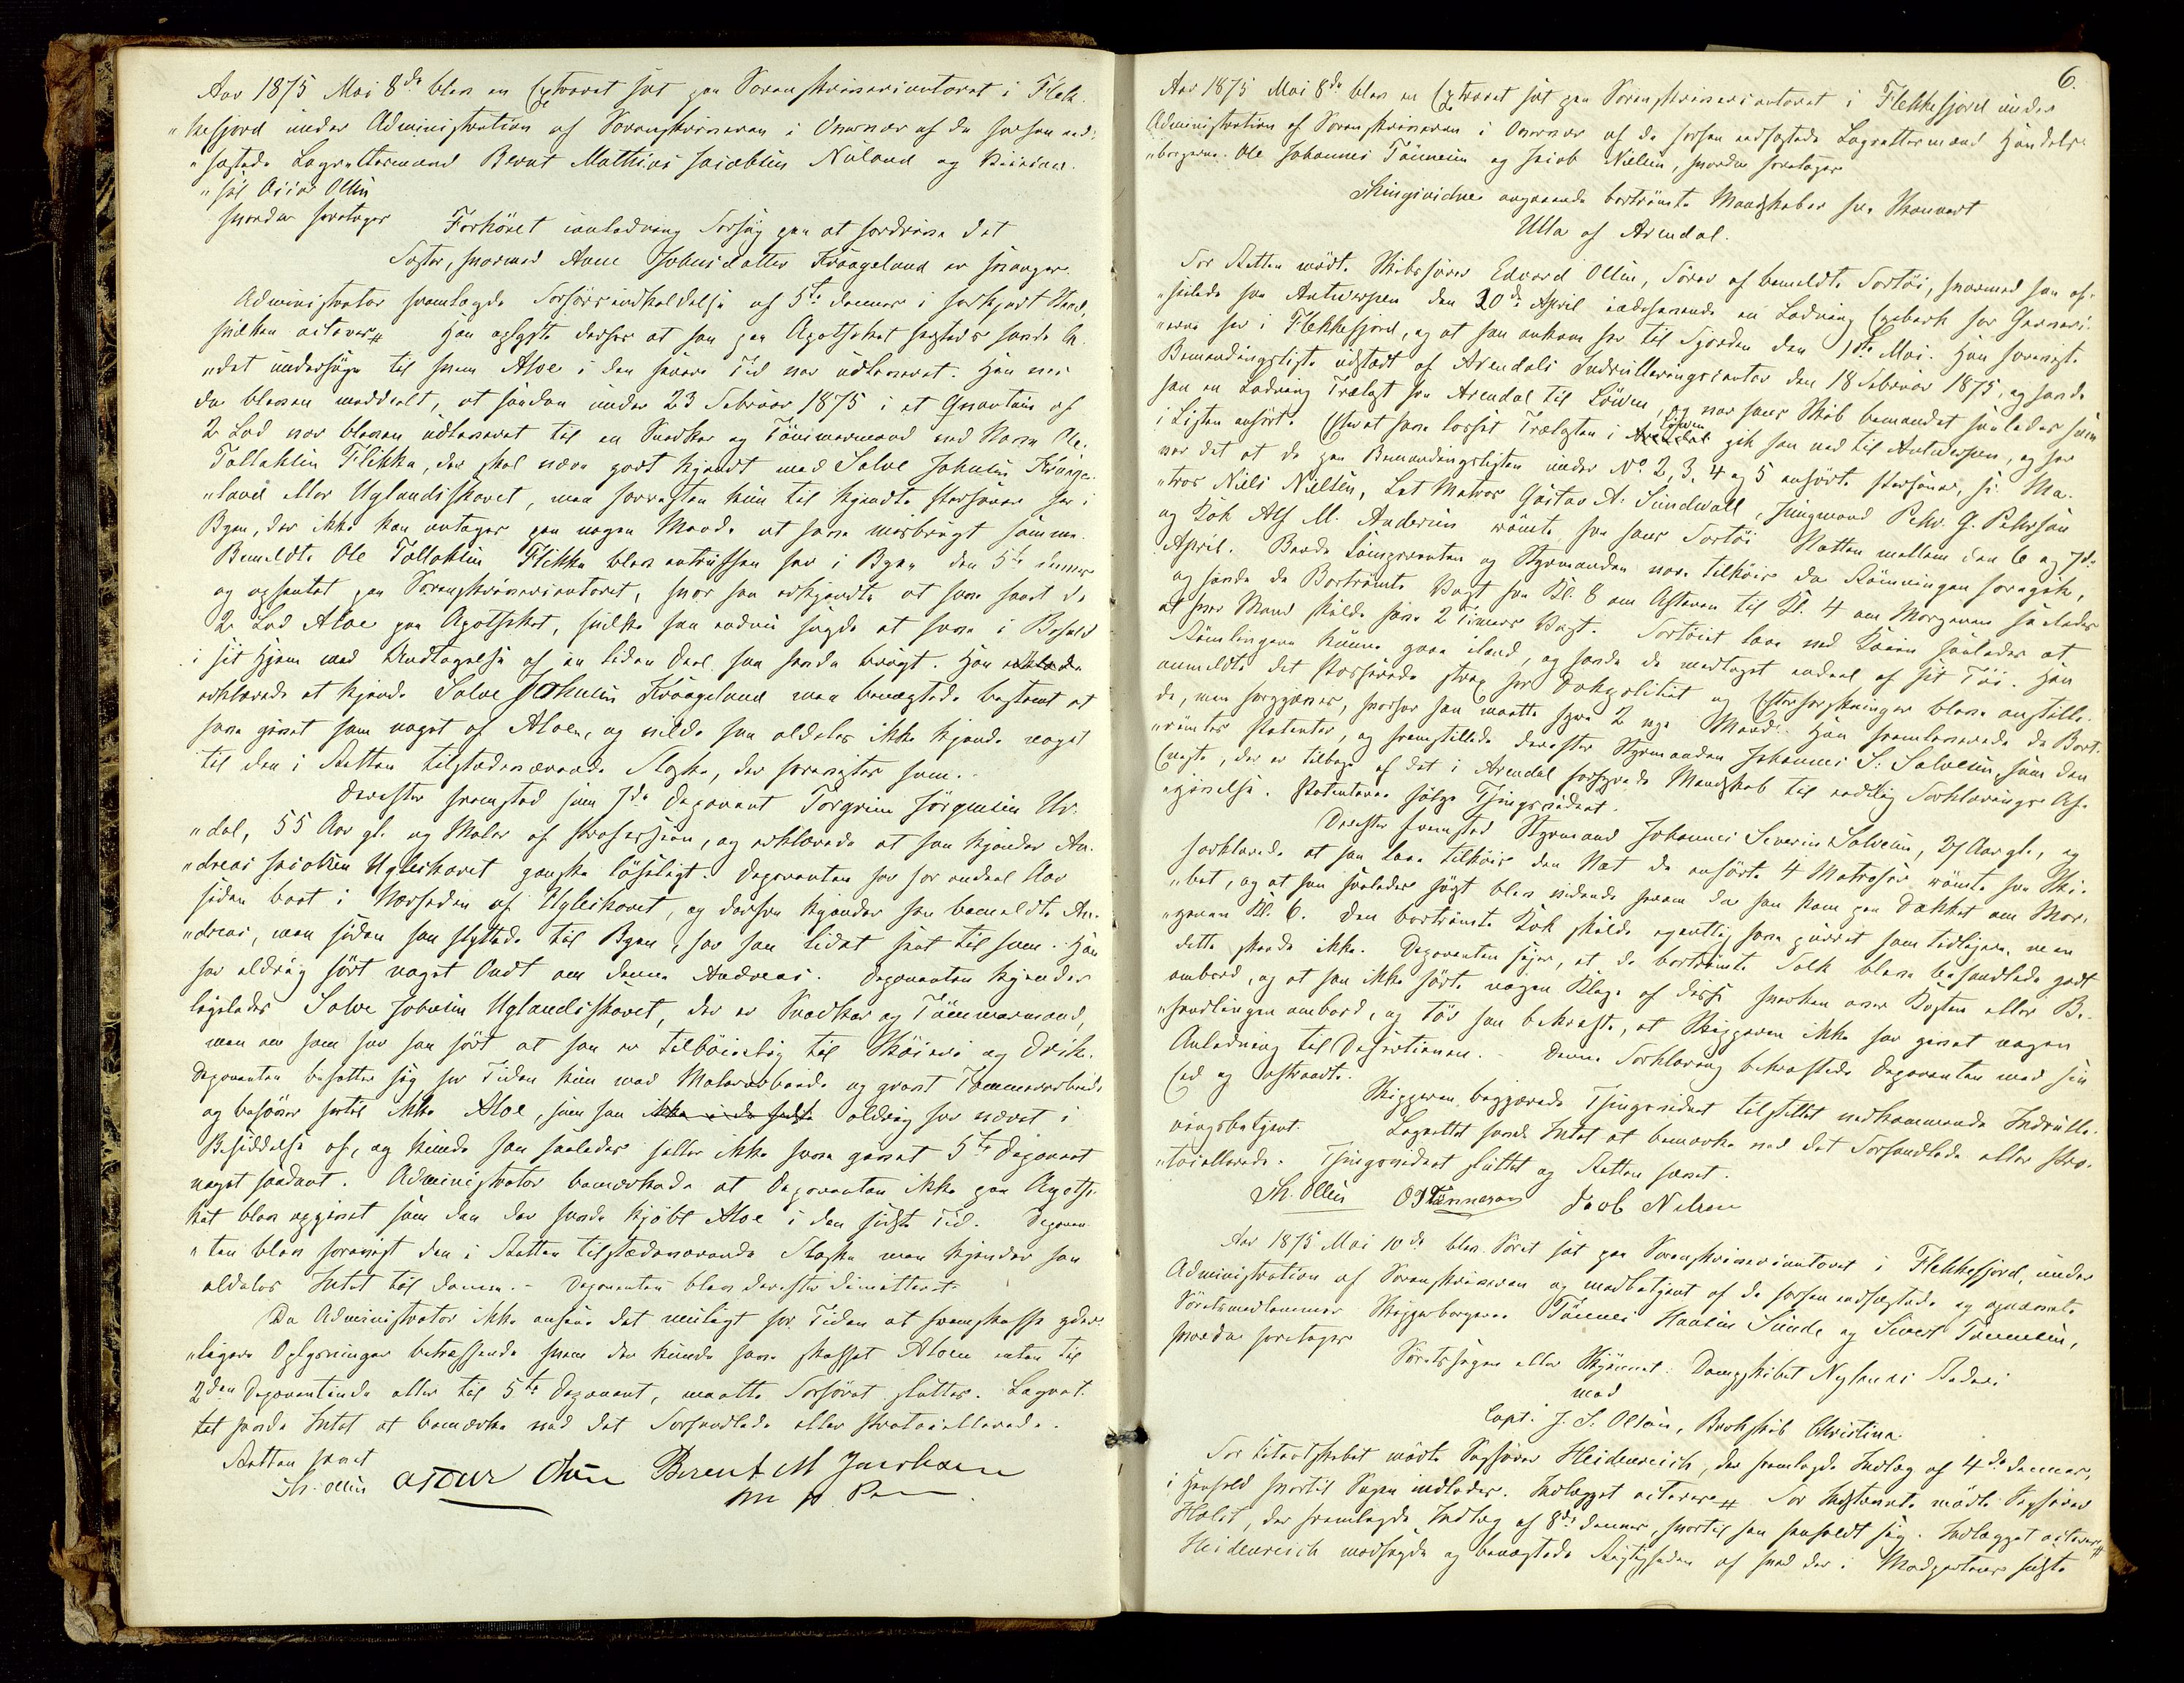 Aar 1875 Mai 8de blev en Extraret sat paa Sorenskrivercontoret i Flek-
"kefjord under Administration af Sorenskriveren i Overvær af de forhen ed-
"fæstede Lagrettesmænd Berent Mathias Jacobsen Nuland og
"sss Asser Olsen
hvorda foretages Forhöret anledning Forsøg paa at fordrive det
Foster, hvormed Anne Johnsdatter Kraageland er svanger.
Administrator fremlagde Forhörsindkaldelse af 5te dennes i forkyndt Stand,
hvilken acteres # Han oplyste derhos at han paa Apotheket hersteds havde la-
"det undersöge til hvem Aloe i den senere Tid var udleveret. Han var
da bleven meddeelt, at saadan under 23 Februar 1875 i et Qvantum af
2 Lod var bleven udleveret til en Snedker og Tömmermand ved Navn Ole
Tollaksen Flikka, der skal være godt kjendt med Salve Johnsen Kraage-
"land eller Uglandsskovet, men forresten kun til kjendte Personer her i
Byen, der ikke kan antages paa nogen Maade at have misbrugt samme.
Bemeldte Ole Tollaksen Flikka blev antruffen her i Byen den 5te dennes
og afhentet paa Sorenskrivercontoret, hvor han erkjendte at have faaet de
2 Lod Aloe paa Apotheket, hvilke han endnu sagde at have i Behold
i sit Hjem med Undtagelse af en liden Deel han havde brugt. Han
erklærede at kjende Salve Johnsen Kraageland men benægtede bestemt at
have givet ham noget af Aloen, og vilde han aldeles ikke kjende noget
til den i Retten tilstedeværende Flaske, der forevistes ham.
Derefter fremstod som 7de Deponent Torgrim Jörgensen Ur-
"dal, 55 Aar gl. og Maler af Profession, og erklærede at han kjender An-
"dreas Jacobsen Ugleskovet ganske löseligt. Deponenten har for endeel Aar
siden boet i Nærheden af Ugleskovet, og derfra kjender han bemeldte An-
"dreas, men siden han flyttede til Byen, har han lidet seet til ham. Han
har aldrig hört noget Ondt om denne Andreas. Deponenten kjender
ligeledes Salve Johnsen Uglandsskovet, der er Snedker og Tömmermand,
men om ham har han hört at han er tilböielig til Sköieri og Drik.
Deponenten befatter sig for Tiden kun med Malerarbeide og grovt Tömmerarbeide
og behöver hertil ikke Aloe, som han aldrig har været i
Besiddelse af, og kunde han saaledes heller ikke have givet 5te Deponent
noget saadant. Administrator bemærkede at Deponenten ikke paa Apothe-
ket blev opgivet som den der havde kjöbt Aloe i den sidste Tid. Deponen-
"ten blev forevist den i Retten tilstedeværende Flaske men kjender han
aldeles Intet til denne. - Deponenten blev derefter dimitteret.
Da Administrator ikke ansaa det muligt for Tiden at fremskaffe yder-
"ligere Oplysninger betræffende hvem der kunde have skaffet Aloen enten til
2den Deponentinde eller til 5te Deponent, maatte Forhöret sluttes. Lagret-
tet havde Intet at bemærke ved det Forhandlede eller Protocollerede.
Retten hævet
Th. Ollin Asser Olsen Berent M Jacobsen
m p. Pen
6.
Aar 1875 Mai 8de blev en Extraret sat paa Sorenskrivercontoret i Flekkefjord under
Administration af Sorenskriveren i Overvær af de forhen edfæstede Lagrettesmænd Handels-
"borgerne Ole Johannes Tönnesen og Jacob Nielsen, hvorda foretages
Thingsvidne angaaende bortrömte Mandskaber fra Skonnert
Ulla af Arendal.
For Retten mödte Skibsförer Edvard Ollsen, Förer af bemeldte Fartöi, hvormed han af-
"seilede fra Antwerpen den 20de April indehavende en Ladning Egebark for Garveri-
"erne her i Flekkefjord, og at han ankom her til Fjorden den 1ste Mai. Han foreviste
Bemandingsliste udstedt af Arendals Indrulleringscontor den 18 Februar 1875, og havde
han en Ladning Trælast fra Arendal til Löwen, og var hans Skib bemandet saaledes som
i Listen anfört. Efter at have losset Trælasten i Löwen gik han ned til Antwerpen, og her
var det at de paa Bemandingslisten under No 2, 3, 4 og 5 anförte Personer, h: Ma-
"tros Niels Nielsen, Let Matros Gustav A: Sundwall, Jungmand Pehr G. Pehrson
og Kok Alf M. Andersen römte fra hans Fartöi Natten mellem den 6 og 7de
April. Baade Comparenten og Styrmanden vare tilköis da Römningen foregik,
og havde de Bortrömte Vagt fra Kl. 8 om Aftenen til Kl. 4 om Morgenen saaledes
at hver Mand skulde have 2 Timers Vagt. Fartöiet laae ved Kaien saaledes at
Römlingene kunne gaae iland, og havde de medtaget endeel af sit Töi. Han
anmeldte det Passerede strax for Dokpolitiet og Efterforskninger bleve anstille-
de, men forgjæves, hvorfor han maatte hyre 2 nye Mænd. Han fremleverede de Bort-
"römtes Patenter, og fremstillede derefter Styrmanden Johannes S. Salvesen, som den
Eneste, der er tilbage af det i Arendal forhyrede Mandskab til edelig Forklarings Af-
"givelse. Patenterne fölge Thingsvidnet.
Derefter fremstod Styrmand Johannes Severin Salvesen, 21 Aar gl., og
forklarede at han laae tilköis den Nat da anförte 4 Matroser römte fra Ski-
"bet, og at han saaledes först blev vidende herom da han kom paa Dækket om Mor-
"genen Kl. 6. Den bortrömte Kok skulde egentlig have purret ham tidligere, men
dette skede ikke. Deponenten siger, at de bortrömte Folk bleve behandlede godt
ombord, og at han ikke hörte nogen Klage af disse hverken over Kosten eller Be-
"handlingen ombord, og tör han bekræfte, at Skipperen ikke har givet nogen
Anledning til Desertionen. - Denne Forklaring bekræftede Deponenten med sin
Eed og aftraadte.
Skipperen begjærede Thingsvidnet tilstillet vedkommende Indrulle-
ringsbetjent. Lagrettet havde Intet at bemærke ved det Forhandlede eller Pro-
"tocollerede. Thingsvidnet sluttet og Retten hævet.
Th. Ollin OJTönnesen Jacob Nilsen
Aar 1875 Mai 10de blev Söret sat paa Sorenskrivercontoret i Flekkefjord, under
Administration af Sorenskriveren og medbetjent af de forhen edfæstede og opnævnte
Söretsmedlemmer Skipperborgerne Tönnes Haalsen Sunde og Sivert Tönnesen,
hvorda foretages
Söretssagen eller Skjönnet: Dampskibet Nylands Rederi
mod
Capt. J. S. Olsön, Barkskib Christina.
For Citantskabet mödte Sagförer Heidenreich, der fremlagde Indlæg af 4de dennes,
i Henhold hvortil Sagen indledes. Indlægget acteres # For Indstævnte mödte Sagförer
Holst, der fremlagde Indlæg af 8de dennes, hvortil han henholdt sig. Indlægget acteres #
Heidenreich modsagde og benægtede Rigtigheden af hvad der i Modpartens sidste